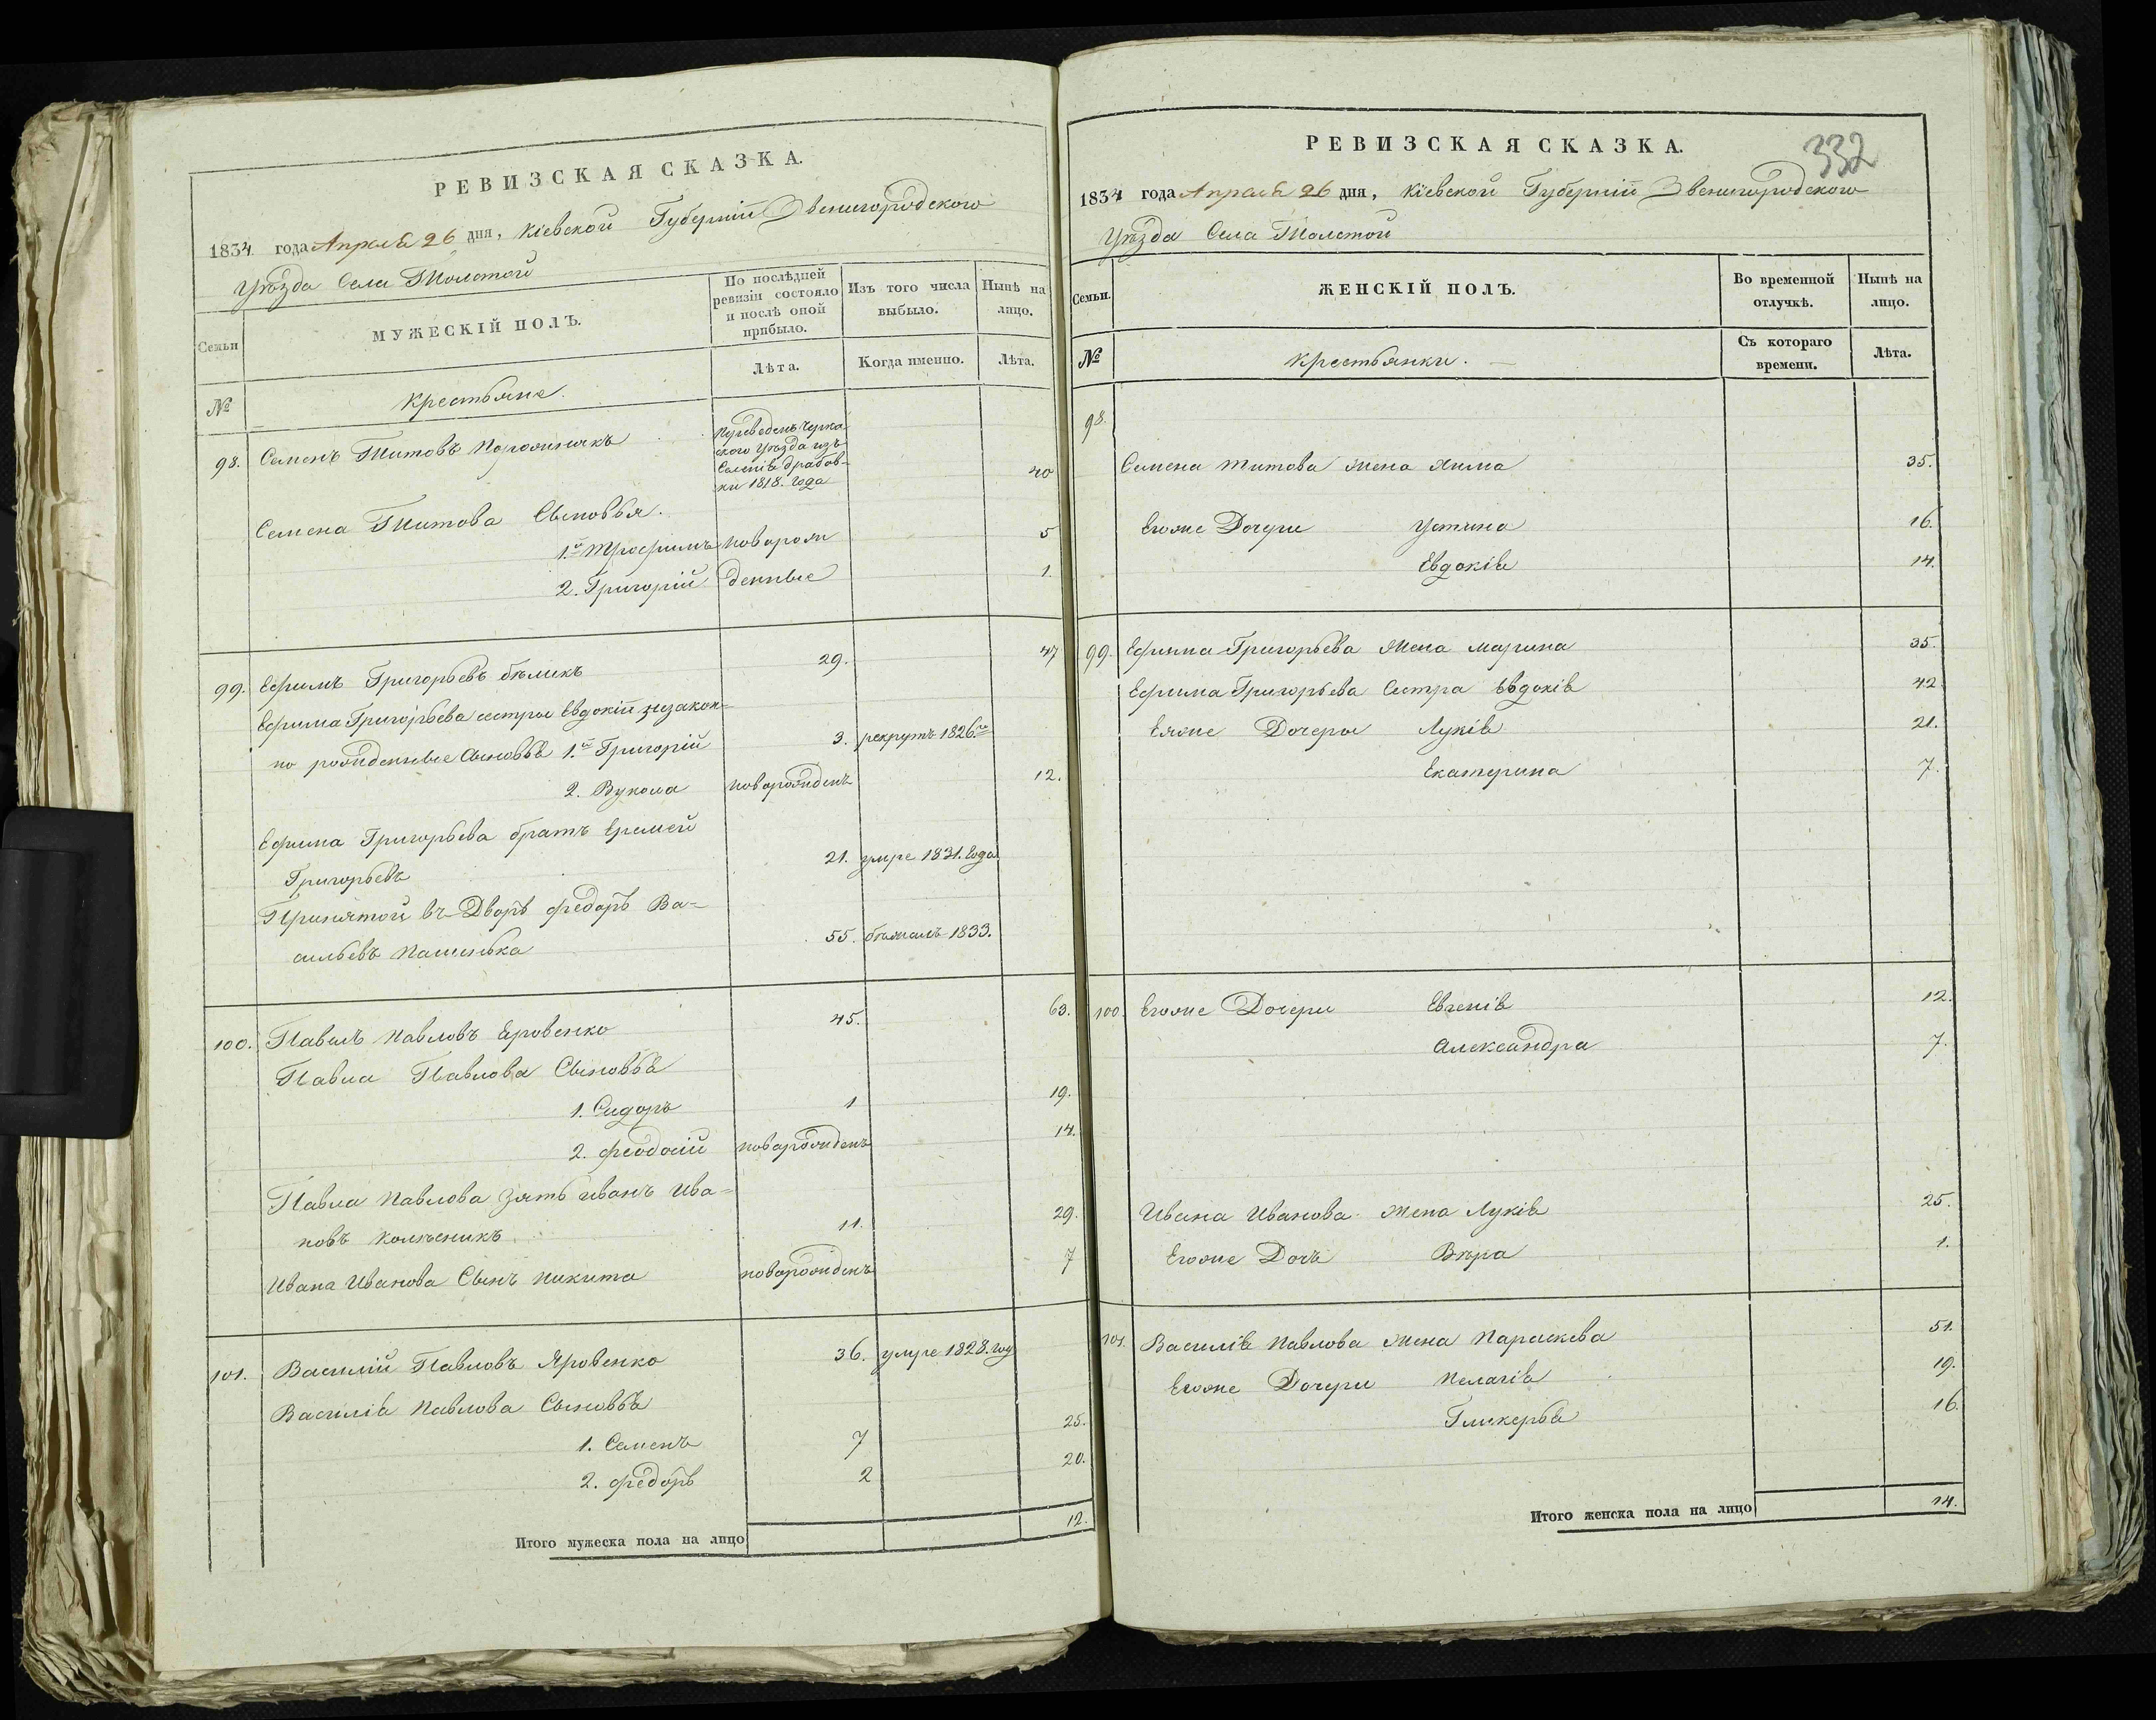 РЕВИЗСКАЯ СКАЗКА.
1834 года Апреля 26 дня, Кіевской Губерніи Звенигородского
Уѣзда Села Толстой
Семьи
МУЖЕСКІЙ ПОЛЪ.
По послѣдней ревизіи состояло и послѣ оной прибыло.
Изъ того числа выбыло.
Нынѣ на лицо.
№
Крестьяне.
Лѣта.
Когда именно.
Лѣта.
98. Семенъ Титовъ
Переведенъ Черка-
ского Уѣзда изъ
Селенія Драбов-
ки 1818. года
40
Семена Титова Сыновья.
1й Трофимъ новорож 5
2. Григорій денные 1.
99. Ефимъ Григорьевъ бѣликъ 29. 47
Ефима Григорьева сестры Евдокіи незакон-
но рожденные Сыновья 1й Григорій 3. рекрутъ 1826го
2. Вукола новорожденъ 12.
Ефима Григорьева братъ Еремей
Григорьевъ 21. умре 1831. года
Принятой въ Дворъ Федоръ Ва-
сильевъ 55. бѣжалъ 1833.
100. Павелъ Павловъ Еровенко 45. 63.
Павла Павлова Сыновья
1. Сидоръ 1 19.
2. Феодосій новорожденъ 14.
Павла Павлова зять Иванъ Ива-
новъ Колѣсникъ 11. 29.
Ивана Иванова Сынъ Никита новорожденъ 7
101. Василій Павловъ Яровенко 36. умре 1828. год
Василія Павлова Сыновья
1. Семенъ 7 25.
2. Федоръ 2 20.
Итого мужеска пола на лицо 12.
332
РЕВИЗСКАЯ СКАЗКА.
1834 года Апреля 26 дня, Кіевской Губерніи Звенигородского
Уѣзда Села Толстой
Семьи.
ЖЕНСКІЙ ПОЛЪ.
Во временной отлучкѣ.
Нынѣ на лицо.
№
Крестьянки.
Съ котораго времени.
Лѣта.
98.
Семена Титова Жена Химa 35.
Егоже Дочери Устина 16.
Евдокія 14.
99. Ефима Григорьева Жена Марина 35.
Ефима Григорьева Сестра Евдокія 42
Еяже Дочеры Лукія 21.
Екатерина 7.
100. Егоже Дочери Евгенія 12.
Александра 7.
Ивана Иванова Жена Лукія 25.
Егоже Дочь Вѣра 1.
101. Василія Павлова Жена Параскева 51.
Егоже Дочери Пелагія 19.
Гликерья 16.
Итого женска пола на лицо 14.